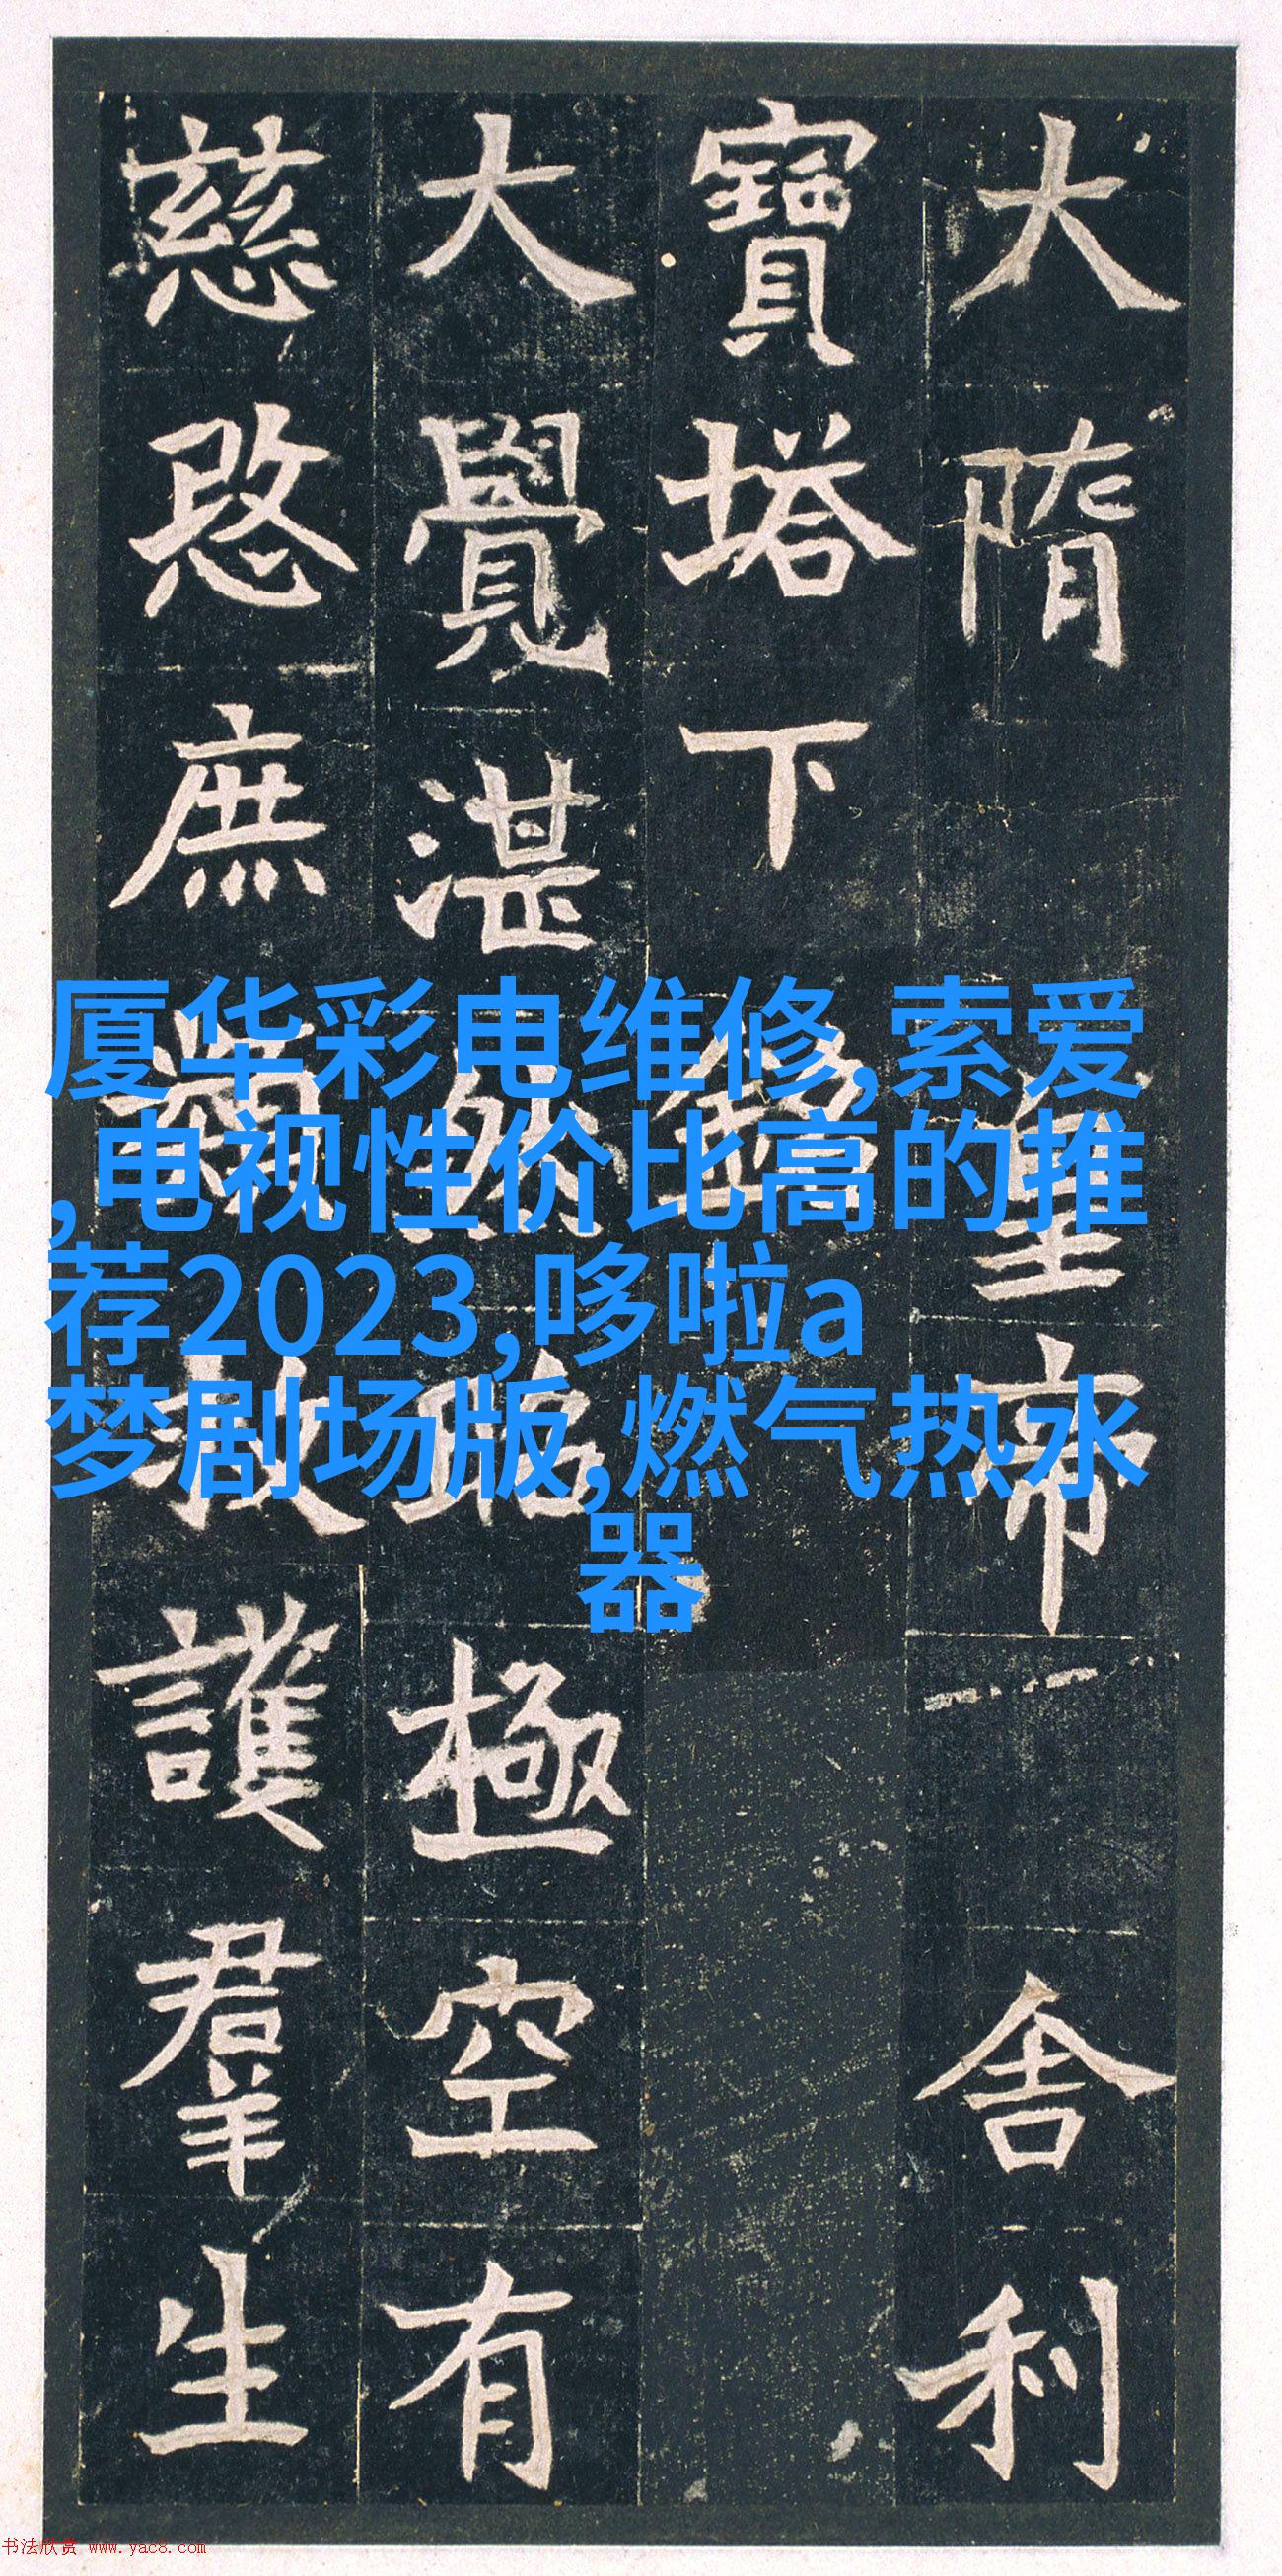 大隋皇帝舍利
寶塔下銘
大覺湛然昭極空有
慈愍庶類救護羣生
厦华彩电维修,索爱
,电视性价比高的推
荐2023,哆啦a
梦剧场版,燃气热水
器
书法欣赏 www.yac8.com